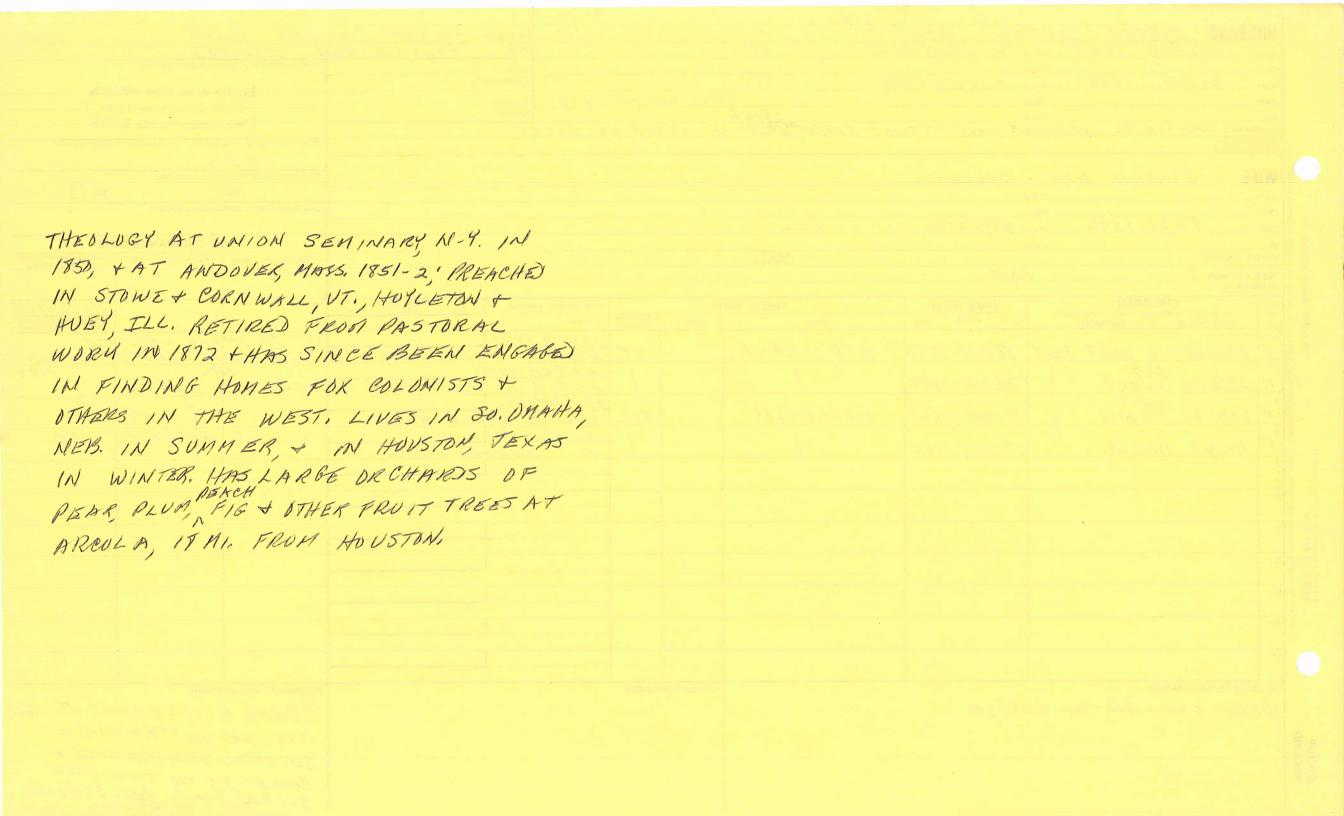 THEOLOGY AT UNION SEMINARY, N-Y. IN
1850, & AT ANDOVER, MASS. 1851-2; PREACHED
IN STOWE & CORNWALL, VT., HOYLETON &
HUEY, ILL. RETIRED FROM PASTORAL
WORK IN 1872 & HAS SINCE BEEN ENGAGED
IN FINDING HOMES FOR COLONISTS &
OTHERS IN THE WEST. LIVES IN SO. OMAHA,
NEB. IN SUMMER, & IN HOUSTON, TEXAS
IN WINTER. HAS LARGE ORCHARDS OF
PEAR, PLUM, PEACH FIG & OTHER FRUIT TREES AT
ARCOLA, 18 MI. FROM HOUSTON.